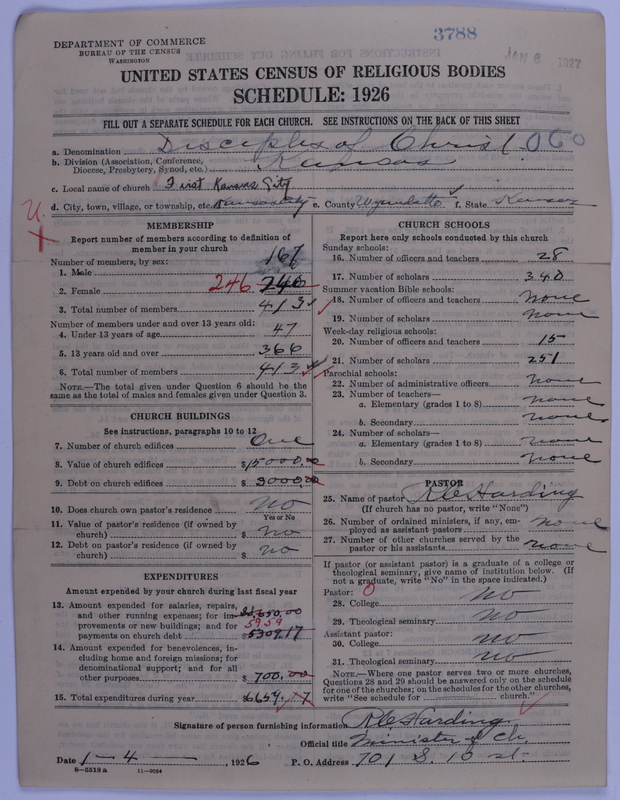 3788
JAN 6 1927
DEPARTMENT OF COMMERCE
BUREAU OF THE CENSUS
WASHINGTON
UNITED STATES CENSUS OF RELIGIOUS BODIES
SCHEDULE: 1926
FILL OUT A SEPARATE SCHEDULE FOR EACH CHURCH. SEE INSTRUCTIONS ON THE BACK OF THIS SHEET
a. Denomination Disciples of Christ 060
b. Division (Association, Conference, Diocese, Presbytery, Synod, etc.) Kansas
c. Local name of church First Kansas City
d. City, town, village, or township, etc. Kansas City e. County Wyandotte f. State Kansas
MEMBERSHIP
Report number of members according to definition of
member in your church
Number of members, by sex:
1. Male 167
2. Female 246
3. Total number of members 413
Number of members under and over 13 years old:
4. Under 13 years of age 47
5. 13 years old and over 366
6. Total number of members 413
NOTE.—The total given under Question 6 should be the
same as the total of males and females given under Question 3.
CHURCH BUILDINGS
See instructions, paragraphs 10 to 12
7. Number of church edifices One
8. Value of church edifices $15000.00
9. Debt on church edifices $3000.00
10. Does church own pastor's residence no
Yes or No
11. Value of pastor's residence (if owned by
church) $ no
12. Debt on pastor's residence (if owned by
church) $ no
EXPENDITURES
Amount expended by your church during last fiscal year
13. Amount expended for salaries, repairs,
and other running expenses; for im-
provements or new buildings; and for 5959
payments on church debt $5309.17
14. Amount expended for benevolences, in-
cluding home and foreign missions; for
denominational support; and for all
other purposes $700.00
15. Total expenditures during year $6659.17
CHURCH SCHOOLS
Report here only schools conducted by this church
Sunday schools:
16. Number of officers and teachers 28
17. Number of scholars 340
Summer vacation Bible schools:
18. Number of officers and teachers none
19. Number of scholars none
Week-day religious schools:
20. Number of officers and teachers 15
21. Number of scholars 251
Parochial schools:
22. Number of administrative officers none
23. Number of teachers—
a. Elementary (grades 1 to 8) none
b. Secondary none
24. Number of scholars—
a. Elementary (grades 1 to 8) none
b. Secondary none
PASTOR
25. Name of pastor Harding
(If church has no pastor, write "None")
26. Number of ordained ministers, if any, em-
ployed as assistant pastors none
27. Number of other churches served by the
pastor or his assistants none
If pastor (or assistant pastor) is a graduate of a college or
theological seminary, give name of institution below. (If
not a graduate, write "No" in the space indicated.)
Pastor: 0
28. College no
29. Theological seminary no
Assistant pastor:
30. College no
31. Theological seminary no
NOTE.—Where one pastor serves two or more churches,
Questions 28 and 29 should be answered only on the schedule
for one of the churches; on the schedules for the other churches,
write "See schedule for church."
Signature of person furnishing information Harding
Official title Minister of Ch.
Date 1-4, 1926 P. O. Address 701 S. 10 st.
8-5318a 11-9034